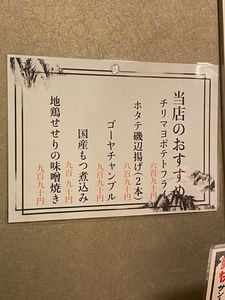 当店のおすすめ
チリマヨポテトフライ
六百九十円
ホタテ磯辺揚げ(2本)
八百九十円
ゴーヤチャンプル
九百九十円
国産もつ煮込み
九百九十円
地鶏せせりの味噌焼き
九百九十円